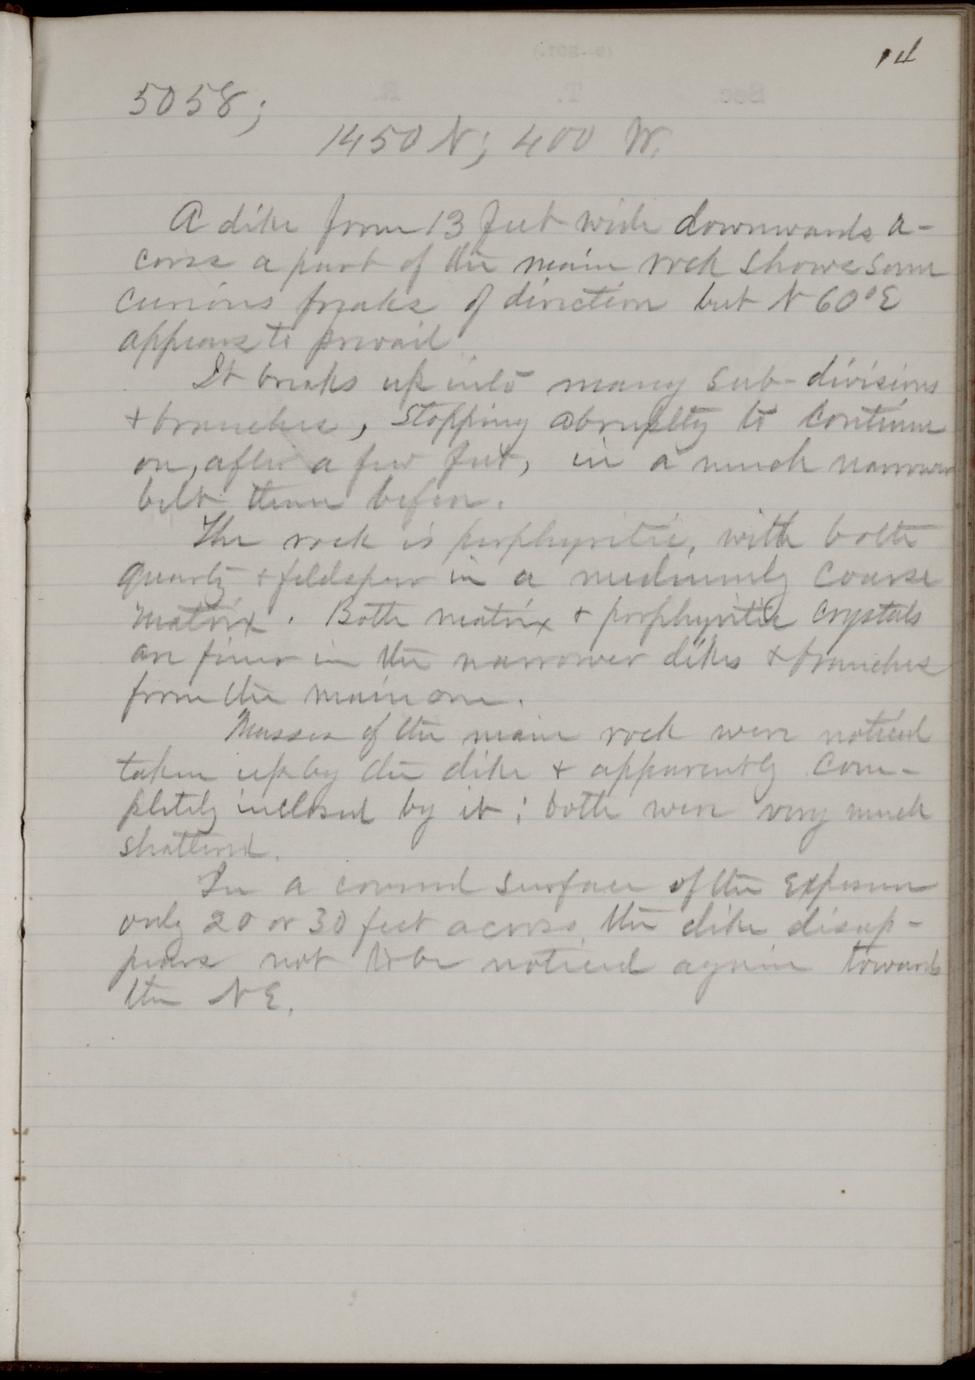 14
5058;
1450 N; 400 W.
A dike from 13 feet wide downwards a-
cross a part of the main rock shows some
curious freaks of direction but N 60° E
appears to prevail
It breaks up into many sub-divisions
+ branches, stopping abruptly to continue
on, after a few feet, in a much narrower
belt than before.
The rock is porphyritic, with both
quartz + feldspar in a mediumly coarse
matrix. Both matrix + porphyritic crystals
are finer in the narrower dikes + branches
from the main one.
Masses of the main rock were noticed
taken up by the dike + apparently com-
pletely inclosed by it; both were very much
shattered.
In a covered surface of the exposure
only 20 or 30 feet across the dike disap-
pears not to be noticed again towards
the NE.